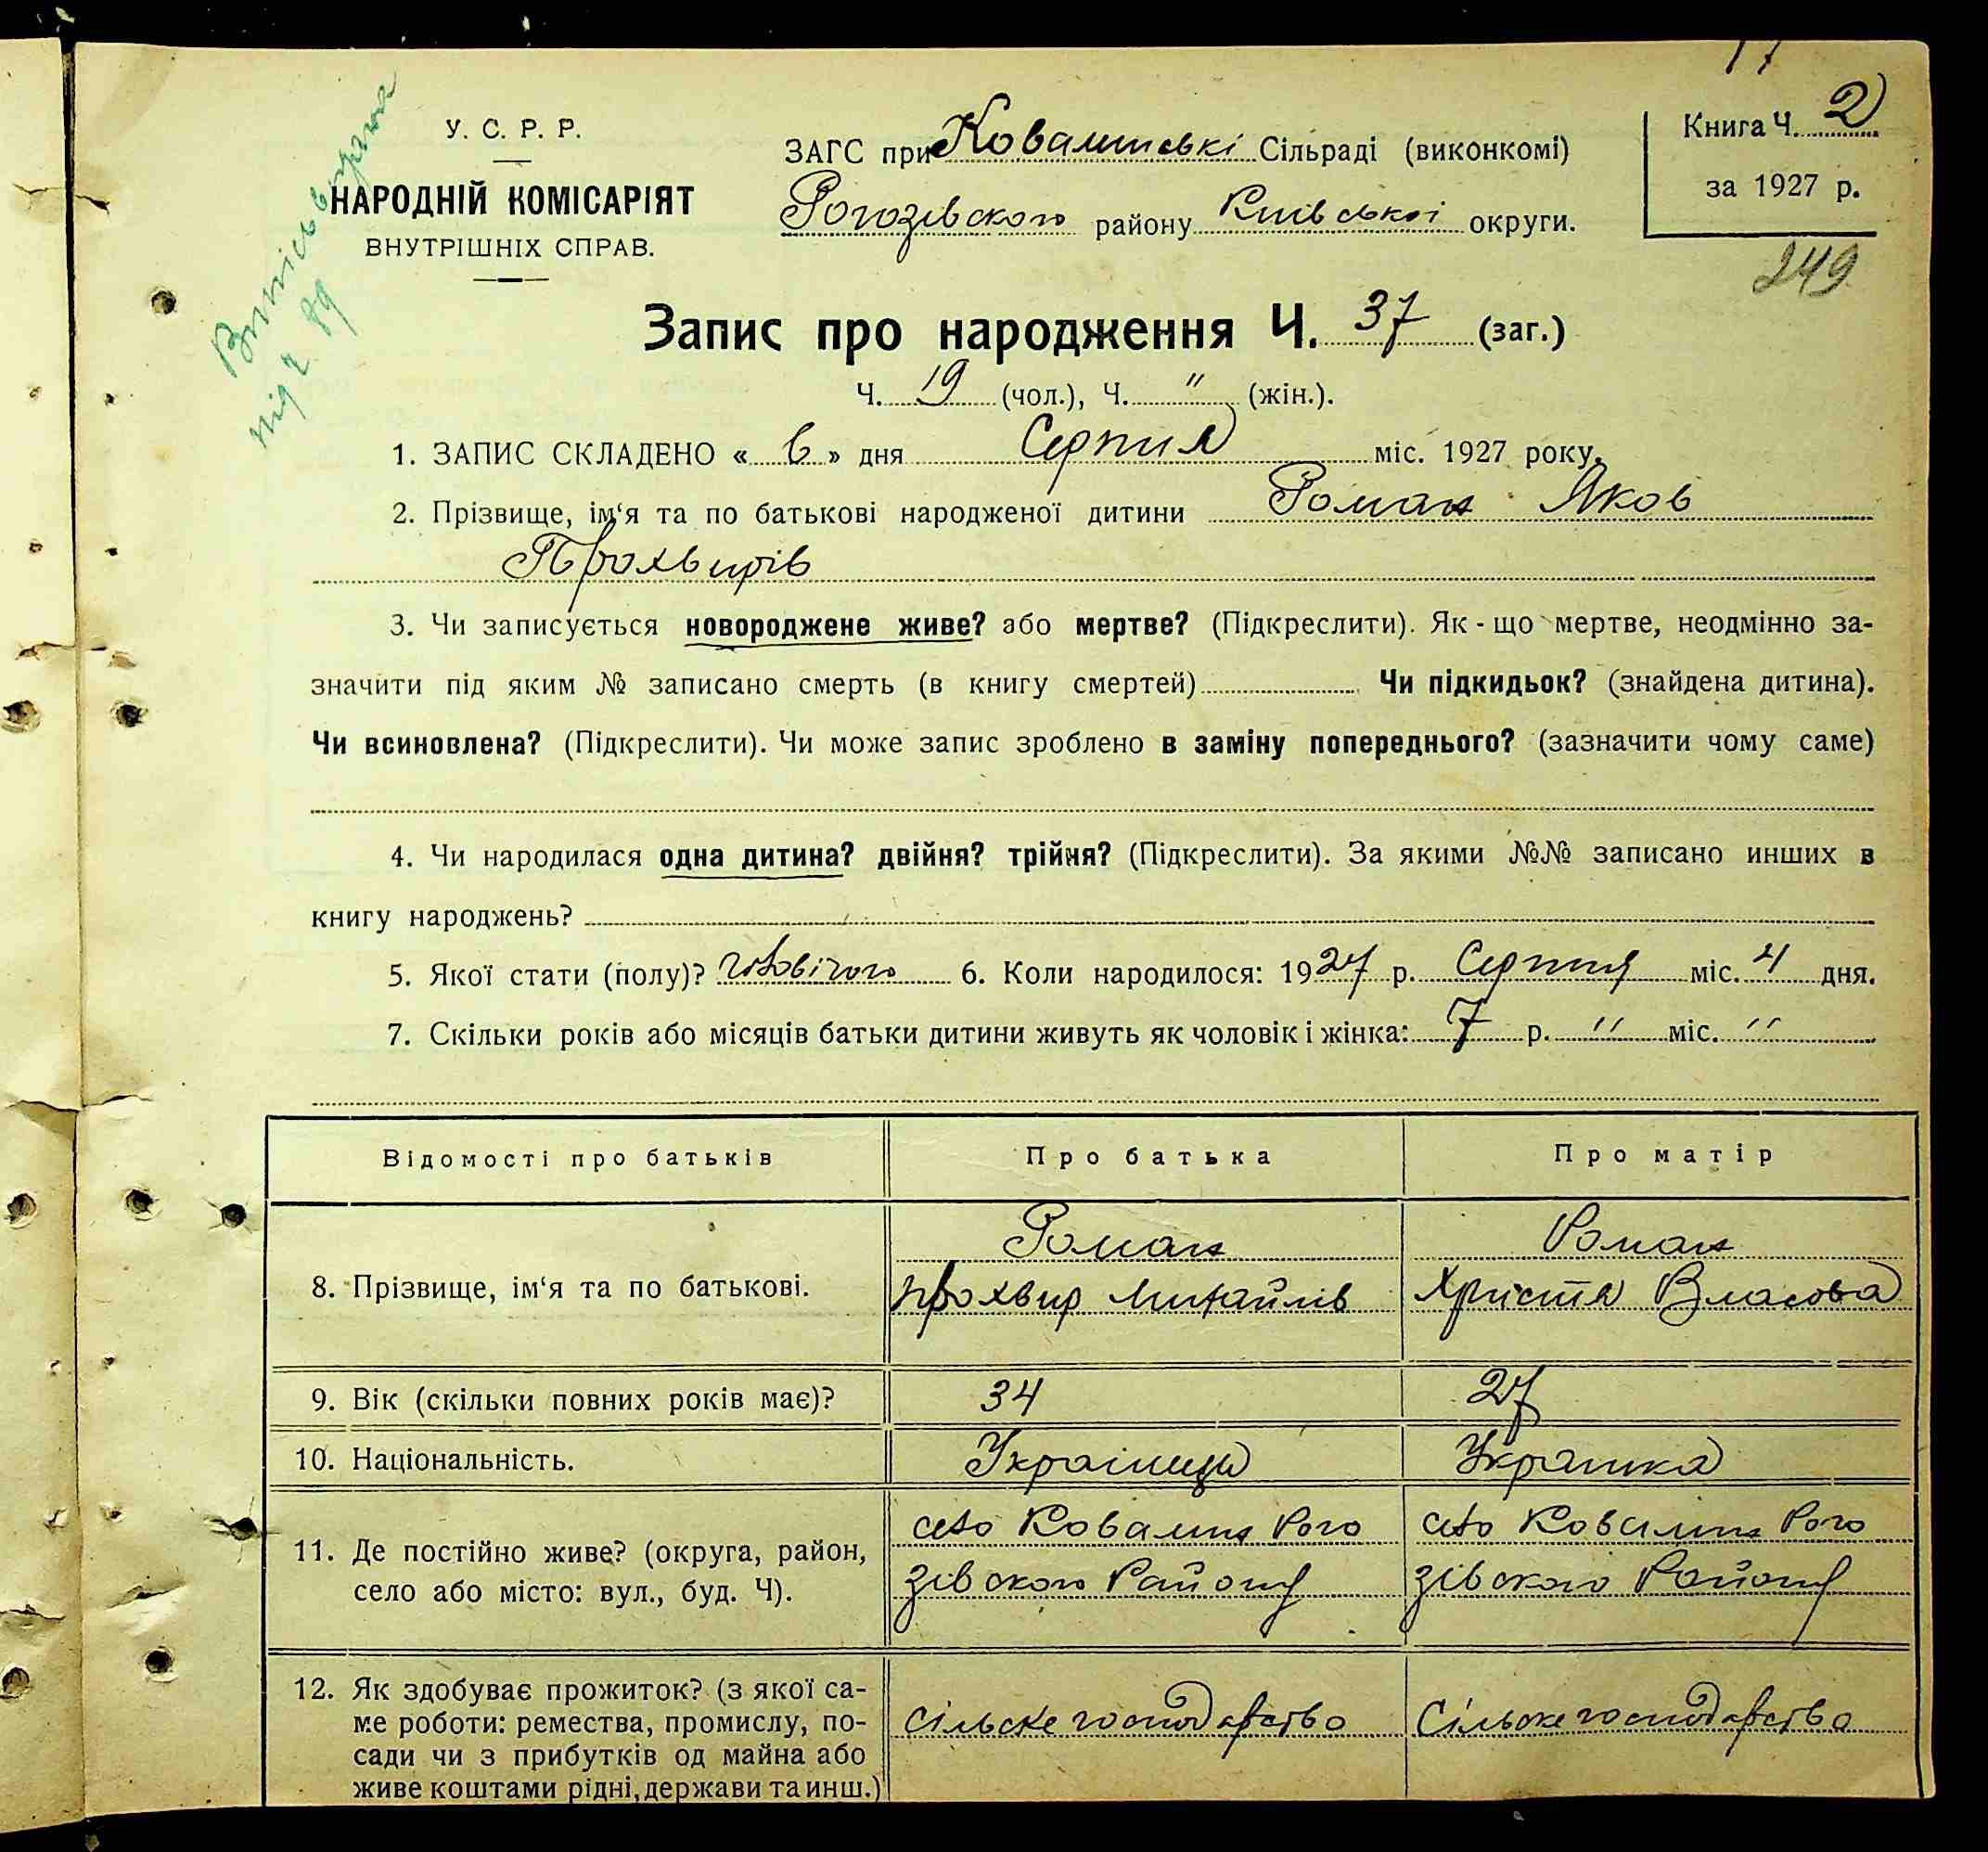 17
Книга Ч. 2
за 1927 р.
249
Виписъ
під ч 89
У. С. Р. Р.
НАРОДНІЙ КОМІСАРІЯТ
ВНУТРІШНІХ СПРАВ.
ЗАГС при Ковалинські Сільраді (виконкомі)
Рогозівского району Київської округи.
Запис про народження Ч. 37 (заг.)
Ч. 19 (чол.), Ч. " (жін.).
1. ЗАПИС СКЛАДЕНО « 6 » дня Серпня міс. 1927 року.
2. Прізвище, ім‘я та по батькові народженої дитини Роман Яков
Прохвирів
3. Чи записується новороджене живе? або мертве? (Підкреслити). Як-що мертве, неодмінно за-
значити під яким № записано смерть (в книгу смертей) Чи підкидьок? (знайдена дитина).
Чи всиновлена? (Підкреслити). Чи може запис зроблено в заміну попереднього? (зазначити чому саме)
4. Чи народилася одна дитина? двійня? трійня? (Підкреслити). За якими №№ записано инших в
книгу народжень?
5. Якої стати (полу)? чоловічого 6. Коли народилося: 1927 р. Серпня міс. 4 дня.
7. Скільки років або місяців батьки дитини живуть як чоловік і жінка: 7 р. " міс. "
Відомості про батьків Про батька Про матір
8. Прізвище, ім‘я та по батькові.
Роман
Прохвир Михайлів
Роман
Христя Власова
9. Вік (скільки повних років має)? 34 27
10. Національність. Українець Українка
11. Де постійно живе? (округа, район,
село або місто: вул., буд. Ч).
село Ковалин Рого
зівского Району
село Ковалин Рого
зівского Району
12. Як здобуває прожиток? (з якої са-
ме роботи: ремества, промислу, по-
сади чи з прибутків од майна або
живе коштами рідні, держави та инш.)
сільске господарство
Сільске господарство